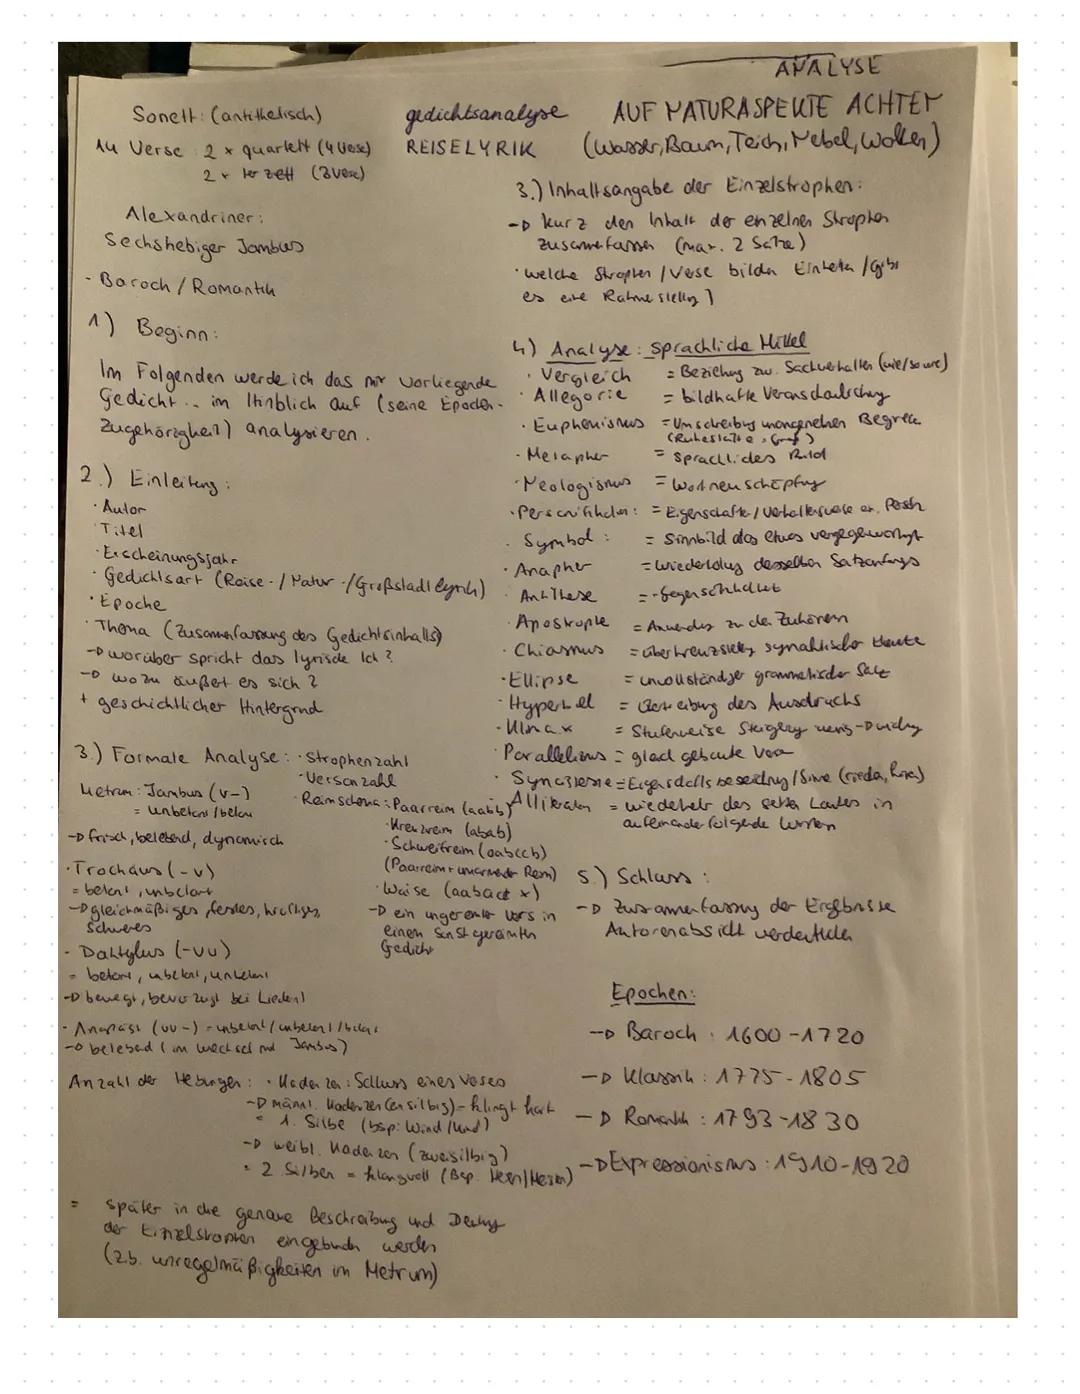 ANALYSE
Sonett: (antithetisch)
14 Verse 2 x quartett (4 Verse)
2 x terzett (3 Verse)
Alexandriner:
Sechshebiger Jambus
- Baroch / Romantik
gedichtsanalyse
REISELYRIK
AUF NATURASPEKTE ACHTEN
(Wasser, Baum, Teich, Nebel, Wolken)
1) Beginn:
Im Folgenden werde ich das mir vorliegende
Gedicht ... im Hinblich auf (seine Epochen-
zugehörigkeit) analysieren.
2.) Einleitung:
· Autor
· Titel
· Erscheinungsjahr
· Gedichtsart (Reise-/Natur-/Großstadtlyrik)
· Epoche
· Thema (Zusammenfassung des Gedichtsinhalts)
→ worüber spricht das lyrische Ich?
→ wozu äußert es sich?
+ geschichtlicher Hintergrund
3.) Formale Analyse: · Strophenzahl
· Versanzahl
· Reimschema: Paarreim (aabb)
· Kreuzreim (abab)
· Schweifreim (aabccb)
(Paarreim + umarmender Reim)
· Waise (aabacd x)
→ ein ungereimter Vers in
einem sonst gereimten
Gedicht
Metrum: Jambus (v-)
= unbetont/betont
→ frisch, belebend, dynamisch
· Trochäus (-v)
= betont, unbetont
→ gleichmäßiges, festes, kräftiges,
schweres
- Daktylus (-vv)
= betont, unbetont, unbetont
→ bewegt, bevorzugt bei Liedern!
· Anapäst (vv-) = unbetont/unbetont/betont
→ belebend (im Wechsel mit Jambus)
Anzahl der Hebungen: · Kadenzen: Schluss eines Verses
→ männl. Kadenzen (einsilbig) - klingt hart
= 1. Silbe (bsp: Wind/Kind)
→ weibl. Kadenzen (zweisilbig)
= 2 Silben = klangvoll (Bsp.
= später in die genaue Beschreibung und Deutung
der Einzelstrophen eingebunden werden
(z.b. unregelmäßigkeiten im Metrum)
3.) Inhaltsangabe der Einzelstrophen:
→ kurz den Inhalt der einzelnen Strophen
zusammenfassen (max. 2 Sätze)
· welche Strophen/Verse bilden Einheiten/gibt
es eine Rahmenstellung?
4) Analyse: sprachliche Mittel
· Vergleich = Beziehung zw. Sachverhalten (wie/so wie)
· Allegorie = bildhafte Veranschaulichung
· Euphemismus = Umschreibung unangenehmer Begriffe
(Ruhestätte = Grab)
· Metapher = sprachliches Bild
· Neologismus = Wortneuschöpfung
· Personifikation: = Eigenschaften/Verhaltensweise er. Person
· Symbol: = Sinnbild das etwas vergegenwärtigt
· Anapher = Wiederholung desselben Satzanfangs
· Antithese = Gegensätzlichkeit
· Apostrophe = Anwendung zu den Zuhörern
· Chiasmus = überkreuzstellung syntaktischer Elemente
· Ellipse = unvollständiger grammatischer Satz
· Hyperbel = Übertreibung des Ausdrucks
· Klimax = Stufenweise Steigerung wenig → wichtig
· Parallelismus = gleich gebaute Verse
· Synästesie = Eigenschaftsbeschreibung/Sinne (riechen, hören)
· Alliteration = wiederkehr des selben Lautes in
aufeinanderfolgende Wörtern
5.) Schluss:
→ Zusammenfassung der Ergebnisse
Autorenabsicht verdeutlichen
Epochen:
→ Baroch: 1600-1720
→ Klassik: 1775-1805
→ Romantik: 1793-1830
→ Expressionismus: 1910-1920